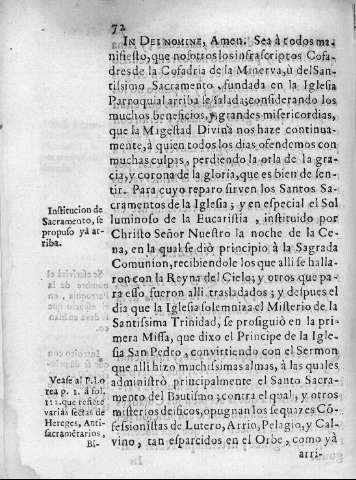 72
IN DEI NOMINE, Amen. Sea à todos ma-
nifiesto, que nosotros los infrascriptos Cofa-
dres de la Cofadria de la Minerva, ù del San-
tissimo Sacramento, fundada en la Iglesia
Parroquial arriba señalada; considerando los
muchos beneficios, y grandes misericordias,
que la Magestad Divina nos haze continua-
mente, à quien todos los dias ofendemos con
muchas culpas, perdiendo la otla de la gra-
cia, y corona de la gloria, que es bien de sen-
tir. Para cuyo reparo sirven los Santos Sa-
cramentos de la Iglesia; y en especial el Sol
luminoso de la Eucaristia, instituido por
Christo Señor Nuestro la noche de la Ce-
na, en la qual se diò principio à la Sagrada
Comunion, recibiendole los que alli se halla-
ron con la Reyna del Cielo; y otros que pa-
ra esso fueron alli trasladados; y despues el
dia que la Iglesia solemniza el Misterio de la
Santissima Trinidad, se prosiguiò en la pri-
mera Missa, que dixo el Principe de la Igle-
sia San Pedro, convirtiendo con el Sermon
que alli hizo muchissimas almas, à las quales
administrò principalmente el Santo Sacra-
mento del Bautismo; contra el qual, y otros
misterios deificos, opugnan los sequazes Cõ-
fessionistas de Lutero, Arrio, Pelagio, y Cal-
vino, tan esparcidos en el Orbe, como yà
arri-
Institucion de
Sacramento, se
propuso yà ar-
riba.
Vease al P. Lo
rea p. 1. à fol.
112. que refiere
varias sectas de
Hereges, Anti-
sacramētarios,
Bi-